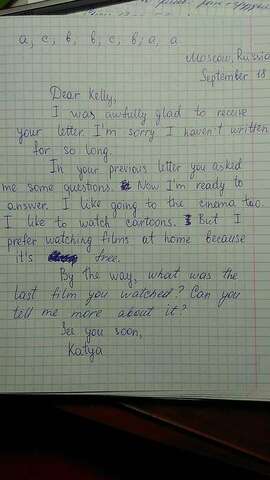 a, c, b, b, c, b, a, a
Moscow, Russia
September 18
Dear Kelly,
I was awfully glad to receive
your letter. I'm sorry I haven't written
for so long.
In your previous letter you asked
me some questions. Now I'm ready to
answer. I like going to the cinema too.
I like to watch cartoons. But I
prefer watching films at home because
it's free.
By the way, what was the
last film you watched? Can you
tell me more about it?
See you soon,
Katya